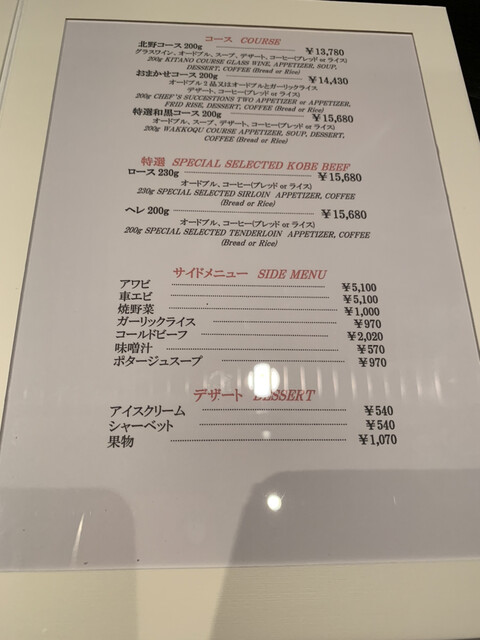 コース COURSE
北野コース 200g ¥13,780
グラスワイン、オードブル、スープ、デザート、コーヒー(ブレッド or ライス)
200g KITANO COURSE GLASS WINE, APPETIZER, SOUP,
DESSERT, COFFEE (Bread or Rice)
おまかせコース 200g ¥14,430
オードブル2品又はオードブルとガーリックライス
デザート、コーヒー(ブレッド or ライス)
200g CHEF'S SUCCESTIONS TWO APPETIZER or APPETIZER,
FRID RISE, DESSERT, COFFEE (Bread or Rice)
特選和黒コース 200g ¥15,680
オードブル、スープ、デザート、コーヒー(ブレッド or ライス)
200g WAKKOQU COURSE APPETIZER, SOUP, DESSERT,
COFFEE (Bread or Rice)
特選 SPECIAL SELECTED KOBE BEEF
ロース 230g ¥15,680
オードブル、コーヒー(ブレッド or ライス)
230g SPECIAL SELECTED SIRLOIN APPETIZER, COFFEE
(Bread or Rice)
ヘレ 200g ¥15,680
オードブル、コーヒー(ブレッド or ライス)
200g SPECIAL SELECTED TENDERLOIN APPETIZER, COFFEE
(Bread or Rice)
サイドメニュー SIDE MENU
アワビ ¥5,100
車エビ ¥5,100
焼野菜 ¥1,000
ガーリックライス ¥970
コールドビーフ ¥2,020
味噌汁 ¥570
ポタージュスープ ¥970
デザート DESSERT
アイスクリーム ¥540
シャーベット ¥540
果物 ¥1,070